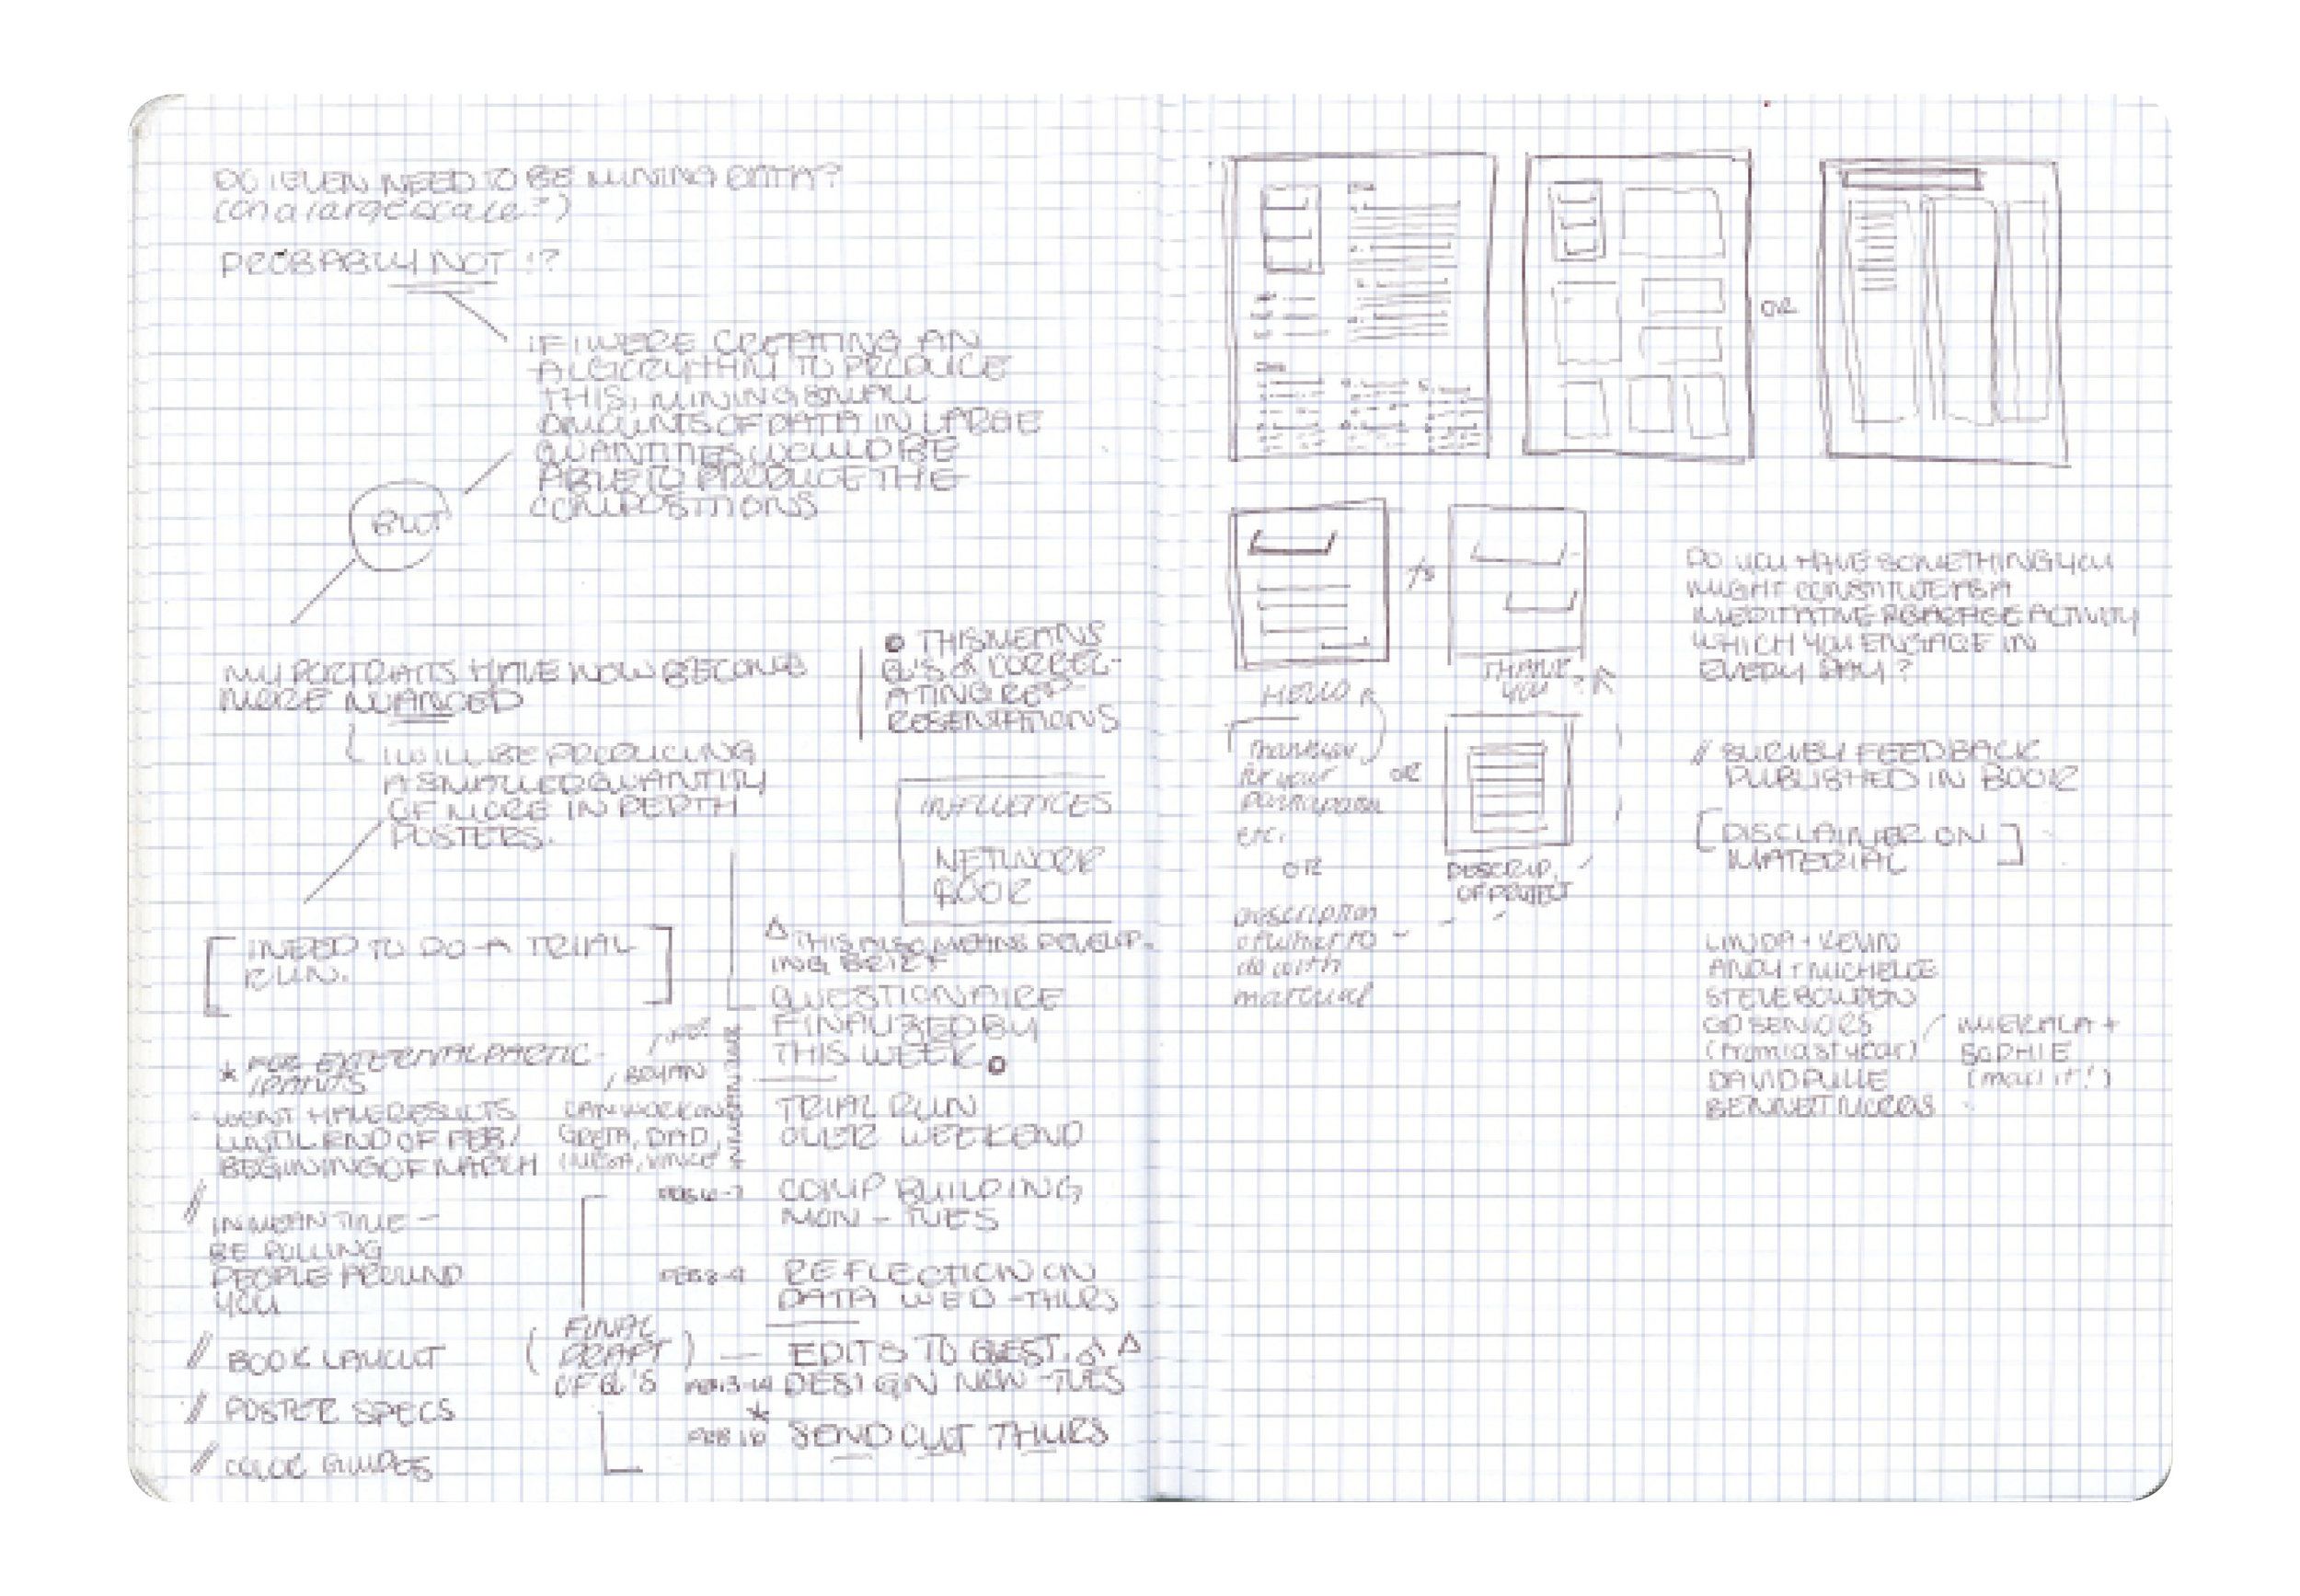 DO I EVEN NEED TO BE MINING DATA?
(on a large scale?)
PROBABLY NOT !?
IF I WERE CREATING AN
ALGORYTHM TO PRODUCE
THIS, MINING SMALL
AMOUNTS OF DATA IN LARGE
QUANTITIES WOULD BE
ABLE TO PRODUCE THE
COMPOSITIONS
BUT
MY PORTRAITS HAVE NOW BECOME
MORE NUANCED
I WILL BE PRODUCING
A SMALLER QUANTITY
OF MORE IN DEPTH
POSTERS.
THIS MEANS
Q'S & CORREL-
ATING REP-
RESENTATIONS
INFLUENCES
NETWORK
BOOK
[I NEED TO DO A TRIAL
RUN.]
△ THIS ALSO MEANS DEVELOP-
ING BRIEF
QUESTIONAIRE
FINALIZED BY
THIS WEEK
TRIAL RUN
OVER WEEKEND
FEB 6-7 COMP BUILDING
MON - TUES
FEB 8-9 REFLECTION ON
DATA WED - THURS
EDITS TO QUEST. & △
FEB 13-14 DESIGN MON - TUES
* FEB 16 SEND OUT THURS
(FINAL
DRAFT)
OF Q'S
* FOR EXTERNAL PARTIC-
IPANTS
- WONT HAVE RESULTS
UNTIL END OF FEB/
BEGINING OF MARCH
BRYAN
GRETA, DAD,
// IN MEAN TIME -
BE POLLING
PEOPLE AROUND
YOU
// BOOK LAYOUT
// POSTER SPECS
// COLOR GUIDES
OR
HELLO
THANK
YOU
Thank you
for your
participation
etc.
OR
OR
description
of what to
do with
material
DESCRIP.
OF PROJECT
DO YOU HAVE SOMETHING YOU
MIGHT CONSTITUTE AS A
MEDITATIVE PRACTICE ACTIVITY
WHICH YOU ENGAGE IN
EVERY DAY?
// SURVEY FEEDBACK
PUBLISHED IN BOOK
[DISCLAIMER ON
MATERIAL]
LINDA + KEVIN
ANDY + MICHELLE
STEVE BOWDEN
GD SENIORS
(from last year)
DAVID
BENNETT
SOPHIE
(mail it!)